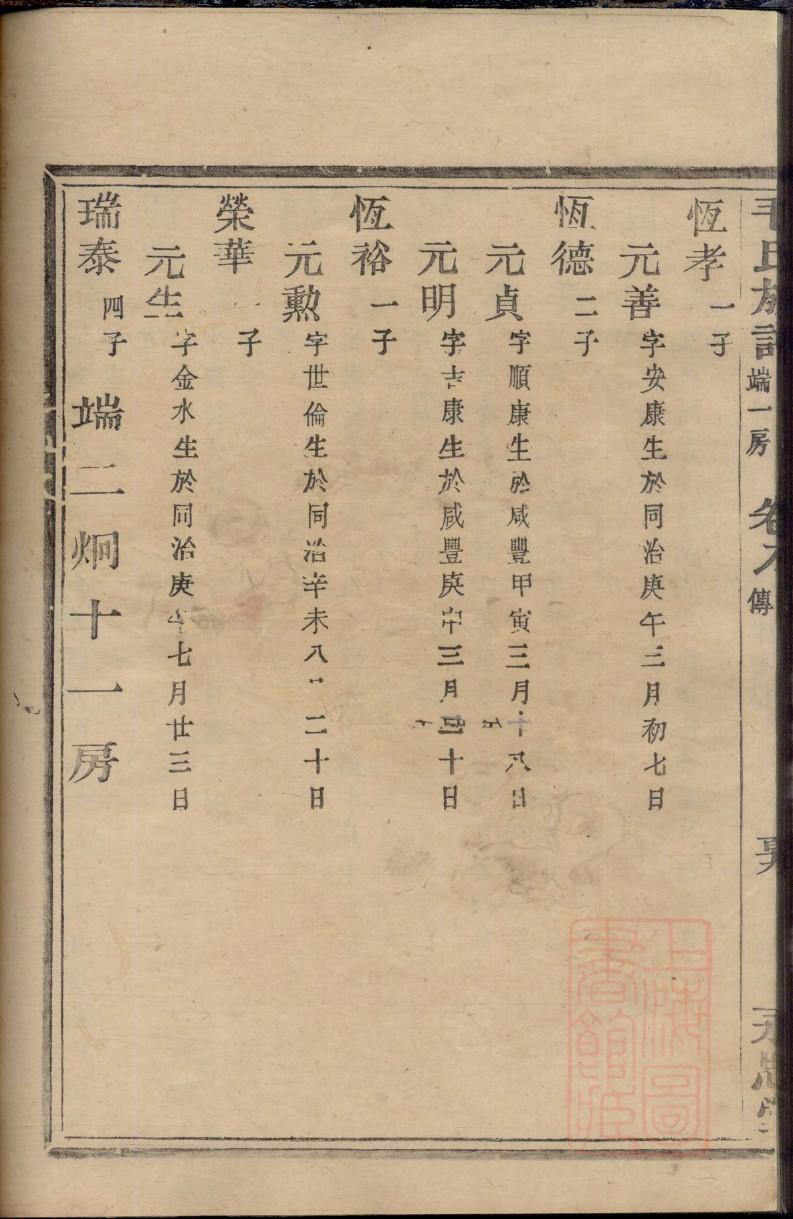 毛氏族譜 端一房 卷 傳 永思堂
恆孝 一子
元善 字安康生於同治庚午三月初七日
恆德 二子
元貞 字順康生於咸豐甲寅三月十八日
元明 字吉康生於咸豐庚申三月二十日
恆裕 一子
元勳 字世倫生於同治辛未八 二十日
榮華 一子
元生 字金水生於同治庚午七月廿三日
瑞泰 四子 端二炯十一房
上海圖書館藏